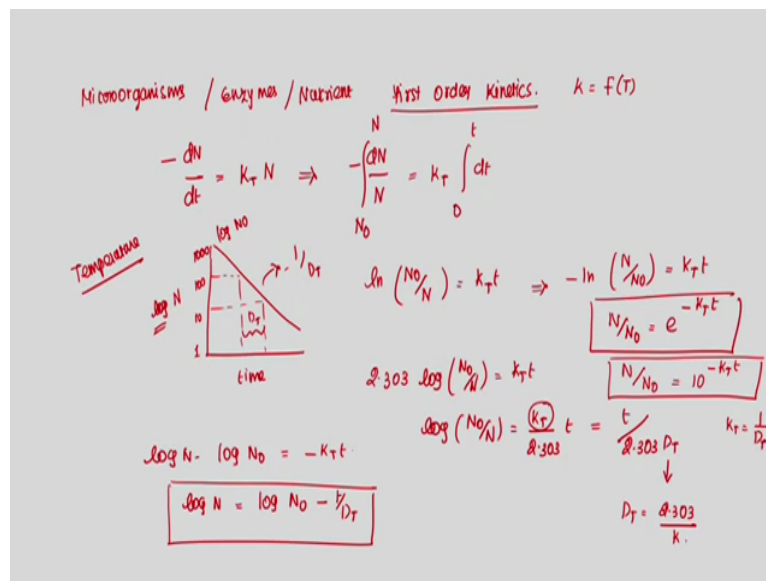 Microorganisms / Enzymes / Nutrient First Order Kinetics. k = f(T)
- dN/dt = K_T N ⇒ - ∫_{N0}^{N} dN/N = K_T ∫_0^t dt
Temperature
log N0
1000
100
10
1
log N
- 1/D_T
D_T
time
ln (N0/N) = K_T t ⇒ - ln (N/N0) = K_T t
N/N0 = e^{-K_T t}
2.303 log (N0/N) = K_T t
N/N0 = 10^{-K_T t}
log (N0/N) = K_T/2.303 t = t/2.303 D_T K_T = 1/D_T
↓
D_T = 2.303/k.
log N - log N0 = - K_T t.
log N = log N0 - t/D_T